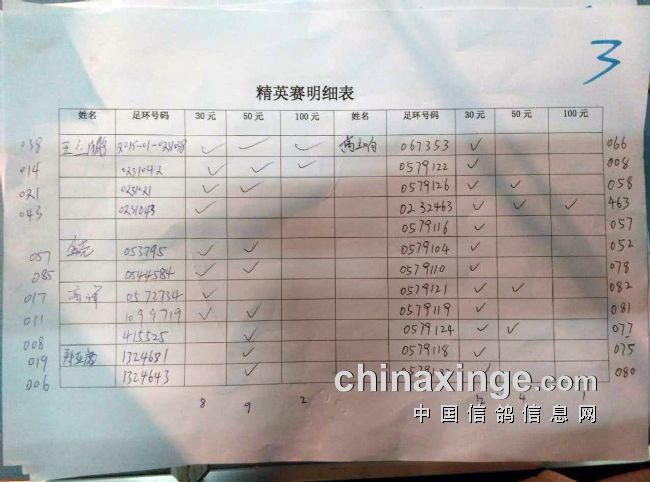 3
精英赛明细表
姓名 足环号码 30元 50元 100元 姓名 足环号码 30元 50元 100元
038 2015-01-0231038 ✓ ✓ ✓ 067353 ✓ 066
014 0231042 ✓ ✓ ✓ 0579122 ✓ 008
021 0231021 ✓ ✓ 0579126 ✓ ✓ 058
043 0231043 ✓ 0232463 ✓ ✓ ✓ 463
0579116 ✓ 057
057 053795 ✓ ✓ 0579104 ✓ 052
085 0544584 ✓ ✓ 0579110 ✓ 078
017 0572734 ✓ 0579121 ✓ ✓ 082
011 1099719 ✓ ✓ 0579119 ✓ 081
008 415525 ✓ 0579124 ✓ ✓ 077
019 1324681 ✓ 0579118 ✓ 075
006 1324643 ✓ ✓ 080
8 9 2 12 4 1
chinaxinge.com
中国信鸽信息网